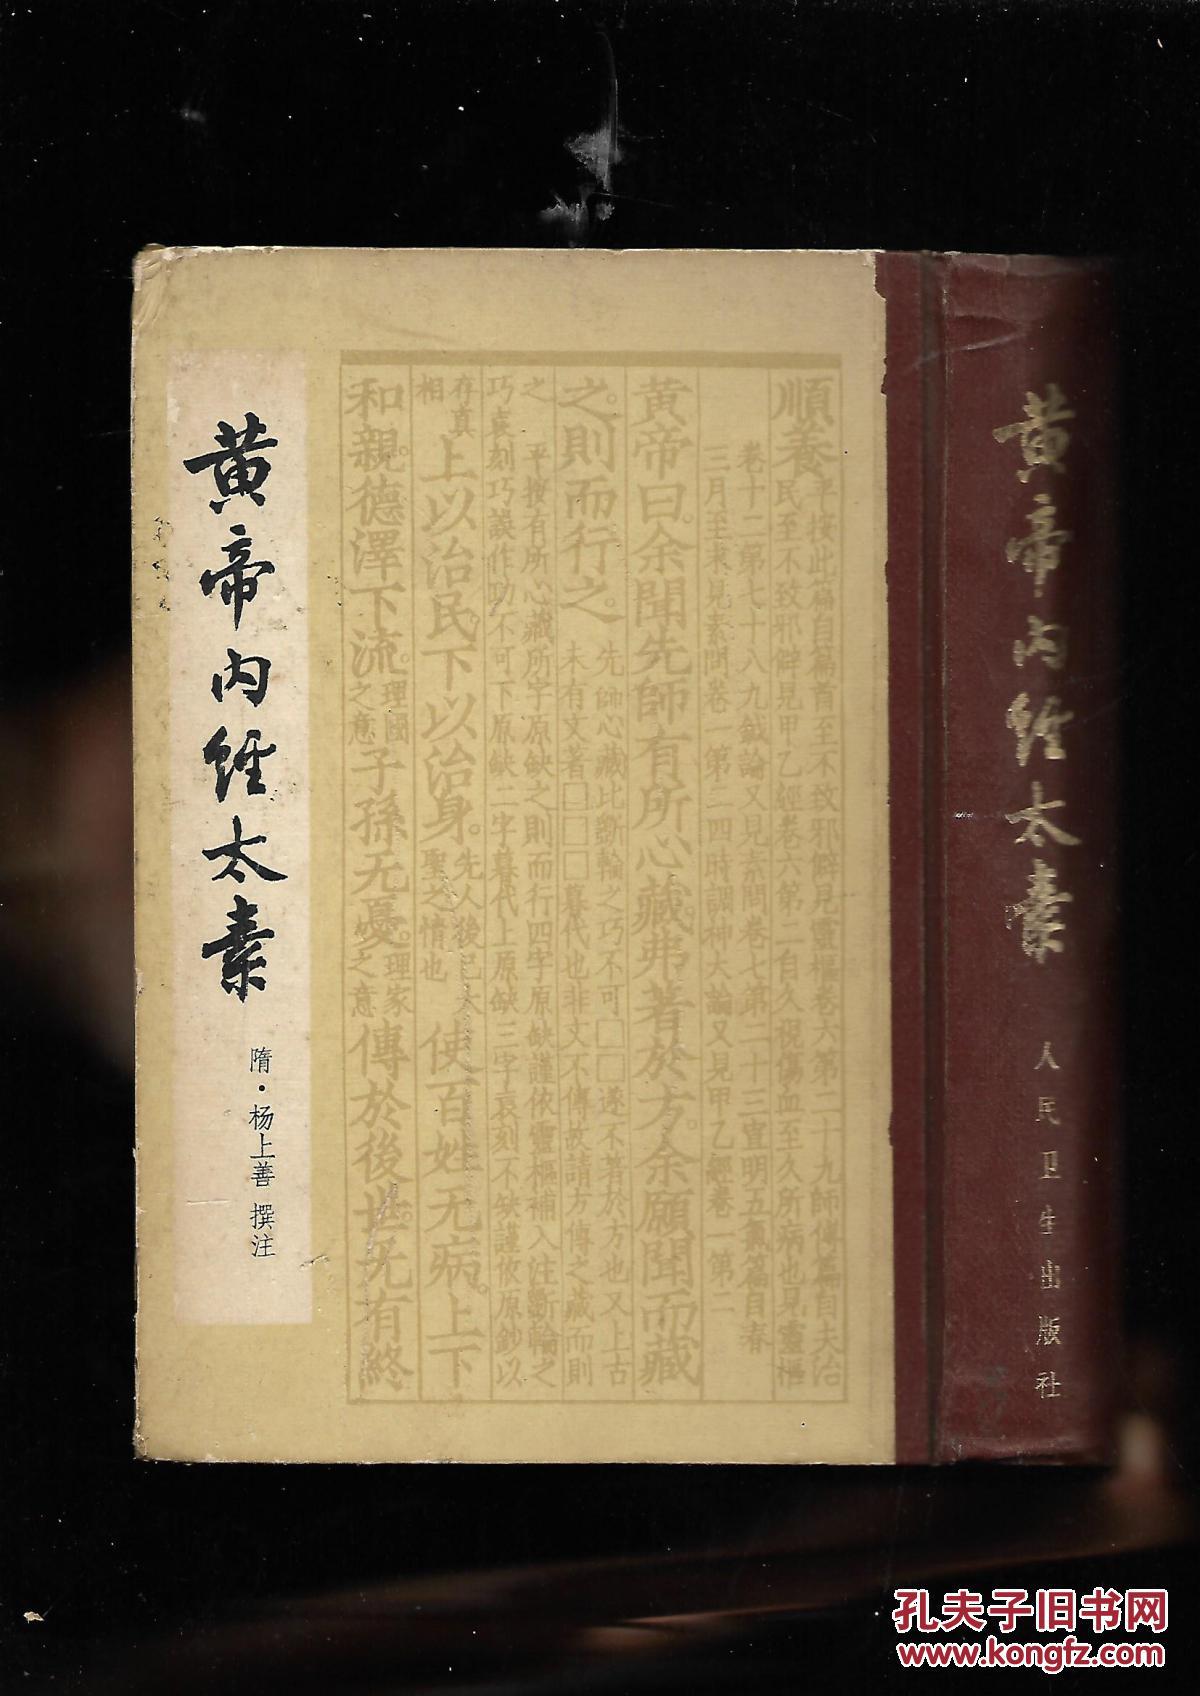 黄帝内经太素
隋·杨上善 撰注
順養平按此篇自篇首至不致邪僻見靈樞卷六第二十九師傳篇自夫治
民至不致邪僻見甲乙經卷六第二自久視傷血至久所病也見靈樞
卷十二第七十八九鍼論又見素問卷七第二十三宣明五氣篇自春
三月至末見素問卷一第二四時調神大論又見甲乙經卷一第二
黄帝曰余聞先師有所心藏弗著於方余願聞而藏
之則而行之先師心藏比斲輪之巧不可□□遂不著於方也又上古
未有文著□□□暮代也非文不傳故請方傳之藏而則
之平按有所心藏所字原缺之則而行四字原缺謹依靈樞補入注斲輪之
巧袁刻巧誤作功不可下原缺二字暮代上原缺三字袁刻不缺謹依原鈔以
存真
相
上以治民下以治身先人後己大
聖之情也
使百姓无病上下
和親德澤下流理國
之意
子孫无憂理家
之意
傳於後世无有終
黄帝内经太素
人民卫生出版社
孔夫子旧书网
www.kongfz.com